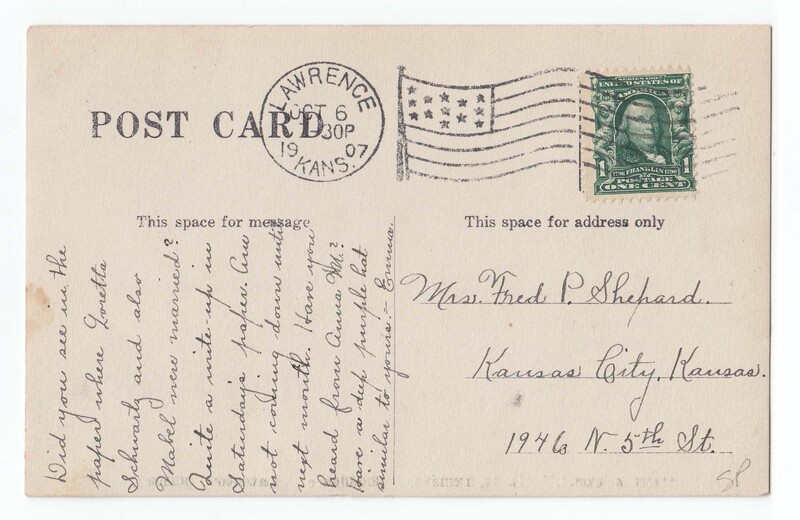 POST CARD
LAWRENCE
OCT 6
30P
1907
KANS.
SERIES 1902
UNITED STATES OF
AMERICA
1
1
1706 FRANKLIN 1790
POSTAGE
ONE CENT
This space for message
This space for address only
Did you see in the
paper where Loretta
Schwartz and also
Mabel were married?
Quite a write-up in
Saturday's paper. Am
not coming down until
next month. Have you
heard from Anna
Have a deep purple hat
similar to yours. - Emma.
Mrs. Fred P. Shepard.
Kansas City, Kansas.
1946 N. 5th St.